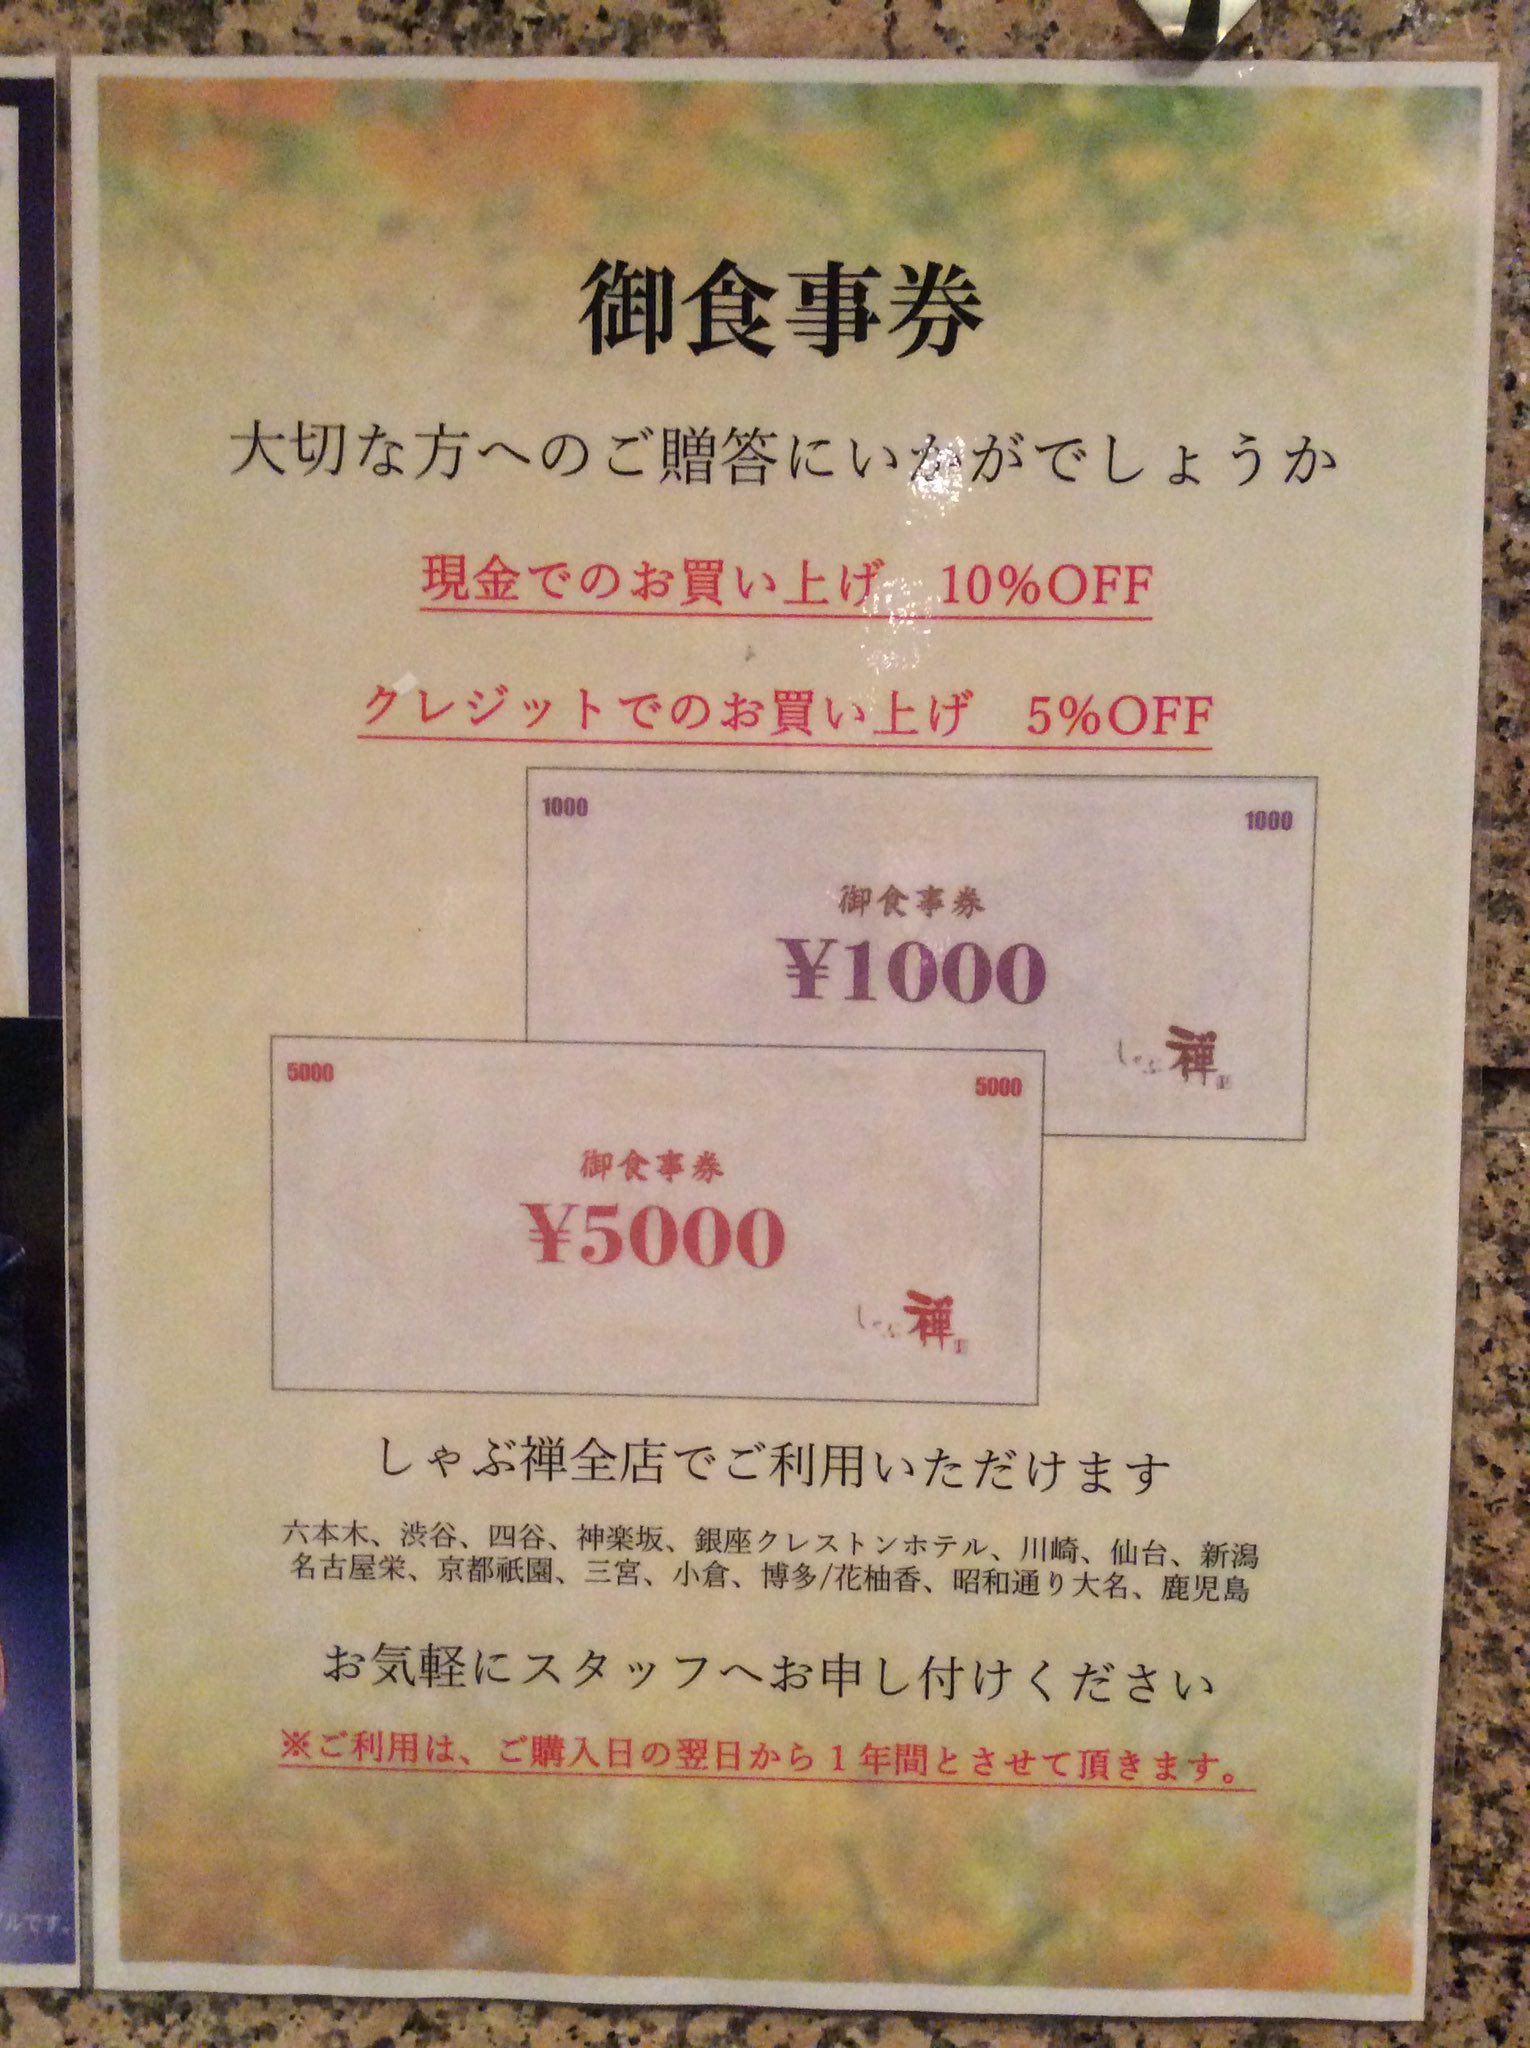 御食事券
大切な方へのご贈答にいかがでしょうか
現金でのお買い上げ 10%OFF
クレジットでのお買い上げ 5%OFF
1000
1000
御食事券
¥1000
しゃぶ禅
5000
5000
御食事券
¥5000
しゃぶ禅
しゃぶ禅全店でご利用いただけます
六本木、渋谷、四谷、神楽坂、銀座クレストンホテル、川崎、仙台、新潟
名古屋栄、京都祇園、三宮、小倉、博多/花柚香、昭和通り大名、鹿児島
お気軽にスタッフへお申し付けください
※ご利用は、ご購入日の翌日から1年間とさせて頂きます。
ルです。